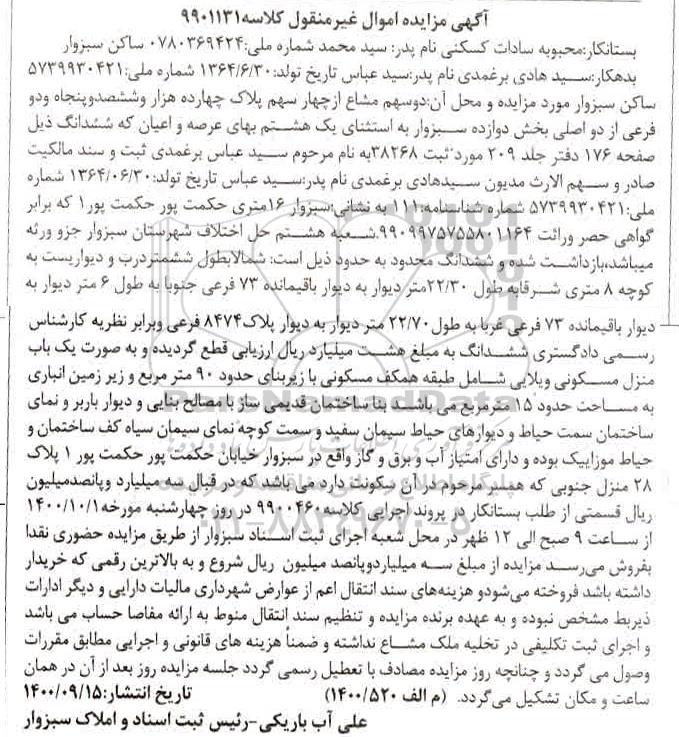 آگهی مزایده اموال غیرمنقول کلاسه۹۹۰۱۱۳۱
بستانکار:محبوبه سادات کسکنی نام پدر: سید محمد شماره ملی:۰۷۸۰۳۶۹۴۲۴ ساکن سبزوار
بدهکار:سید هادی برغمدی نام پدر:سید عباس تاریخ تولد:۱۳۶۴/۶/۳۰ شماره ملی:۵۷۳۹۹۳۰۴۲۱
ساکن سبزوار مورد مزایده و محل آن:دوسهم مشاع ازچهار سهم پلاک چهارده هزار وششصدوپنجاه ودو
فرعی از دو اصلی بخش دوازده سبزوار به استثنای یک هشتم بهای عرصه و اعیان که ششدانگ ذیل
صفحه ۱۷۶ دفتر جلد ۲۰۹ مورد ثبت ۳۸۲۶۸به نام مرحوم سید عباس برغمدی ثبت و سند مالکیت
صادر و سهم الارث مدیون سیدهادی برغمدی نام پدر:سید عباس تاریخ تولد:۱۳۶۴/۰۶/۳۰ شماره
ملی:۵۷۳۹۹۳۰۴۲۱ شماره شناسنامه:۱۱۱ به نشانی:سبزوار ۱۶متری حکمت پور حکمت پور۱ که برابر
گواهی حصر وراثت ۹۹۰۹۹۷۵۷۵۵۸۰۱۱۶۴.شعبه هشتم حل اختلاف شهرستان سبزوار جزو ورثه
میباشد،بازداشت شده و ششدانگ محدود به حدود ذیل است: شمالابطول ششمتردرب و دیواریست به
کوچه ۸ متری شرقابه طول ۲۲/۳۰متر دیوار به دیوار باقیمانده ۷۳ فرعی جنوبا به طول ۶ متر دیوار به
دیوار باقیمانده ۷۳ فرعی غربا به طول۲۲/۷۰ متر دیوار به دیوار پلاک۸۴۷۴ فرعی وبرابر نظریه کارشناس
رسمی دادگستری ششدانگ به مبلغ هشت میلیارد ریال ارزیابی قطع گردیده و به صورت یک باب
منزل مسکونی ویلایی شامل طبقه همکف مسکونی با زیربنای حدود ۹۰ متر مربع و زیر زمین انباری
به مساحت حدود ۱۵ مترمربع می باشند بنا ساختمان قدیمی ساز با مصالح بنایی و دیوار باربر و نمای
ساختمان سمت حیاط و دیوارهای حیاط سیمان سفید و سمت کوچه نمای سیمان سیاه کف ساختمان و
حیاط موزاییک بوده و دارای امتیاز آب و برق و گاز واقع در سبزوار خیابان حکمت پور حکمت پور ۱ پلاک
۲۸ منزل جنوبی که همسر مرحوم در آن سکونت دارد می باشد که در قبال سه میلیارد وپانصدمیلیون
ریال قسمتی از طلب بستانکار در پروند اجرایی کلاسه۹۹۰۰۴۶۰ در روز چهارشنبه مورخه۱۴۰۰/۱۰/۱
از ساعت ۹ صبح الی ۱۲ ظهر در محل شعبه اجرای ثبت اسناد سبزوار از طریق مزایده حضوری نقدا
بفروش می‌رسد مزایده از مبلغ سه میلیاردوپانصد میلیون ریال شروع و به بالاترین رقمی که خریدار
داشته باشد فروخته می‌شودو هزینه‌های سند انتقال اعم از عوارض شهرداری مالیات دارایی و دیگر ادارات
ذیربط مشخص نبوده و به عهده برنده مزایده و تنظیم سند انتقال منوط به ارائه مفاصا حساب می باشد
و اجرای ثبت تکلیفی در تخلیه ملک مشاع نداشته و ضمناً هزینه های قانونی و اجرایی مطابق مقررات
وصول می گردد و چنانچه روز مزایده مصادف با تعطیل رسمی گردد جلسه مزایده روز بعد از آن در همان
ساعت و مکان تشکیل می‌گردد. (م الف ۱۴۰۰/۵۲۰) تاریخ انتشار:۱۴۰۰/۰۹/۱۵
علی آب باریکی-رئیس ثبت اسناد و املاک سبزوار